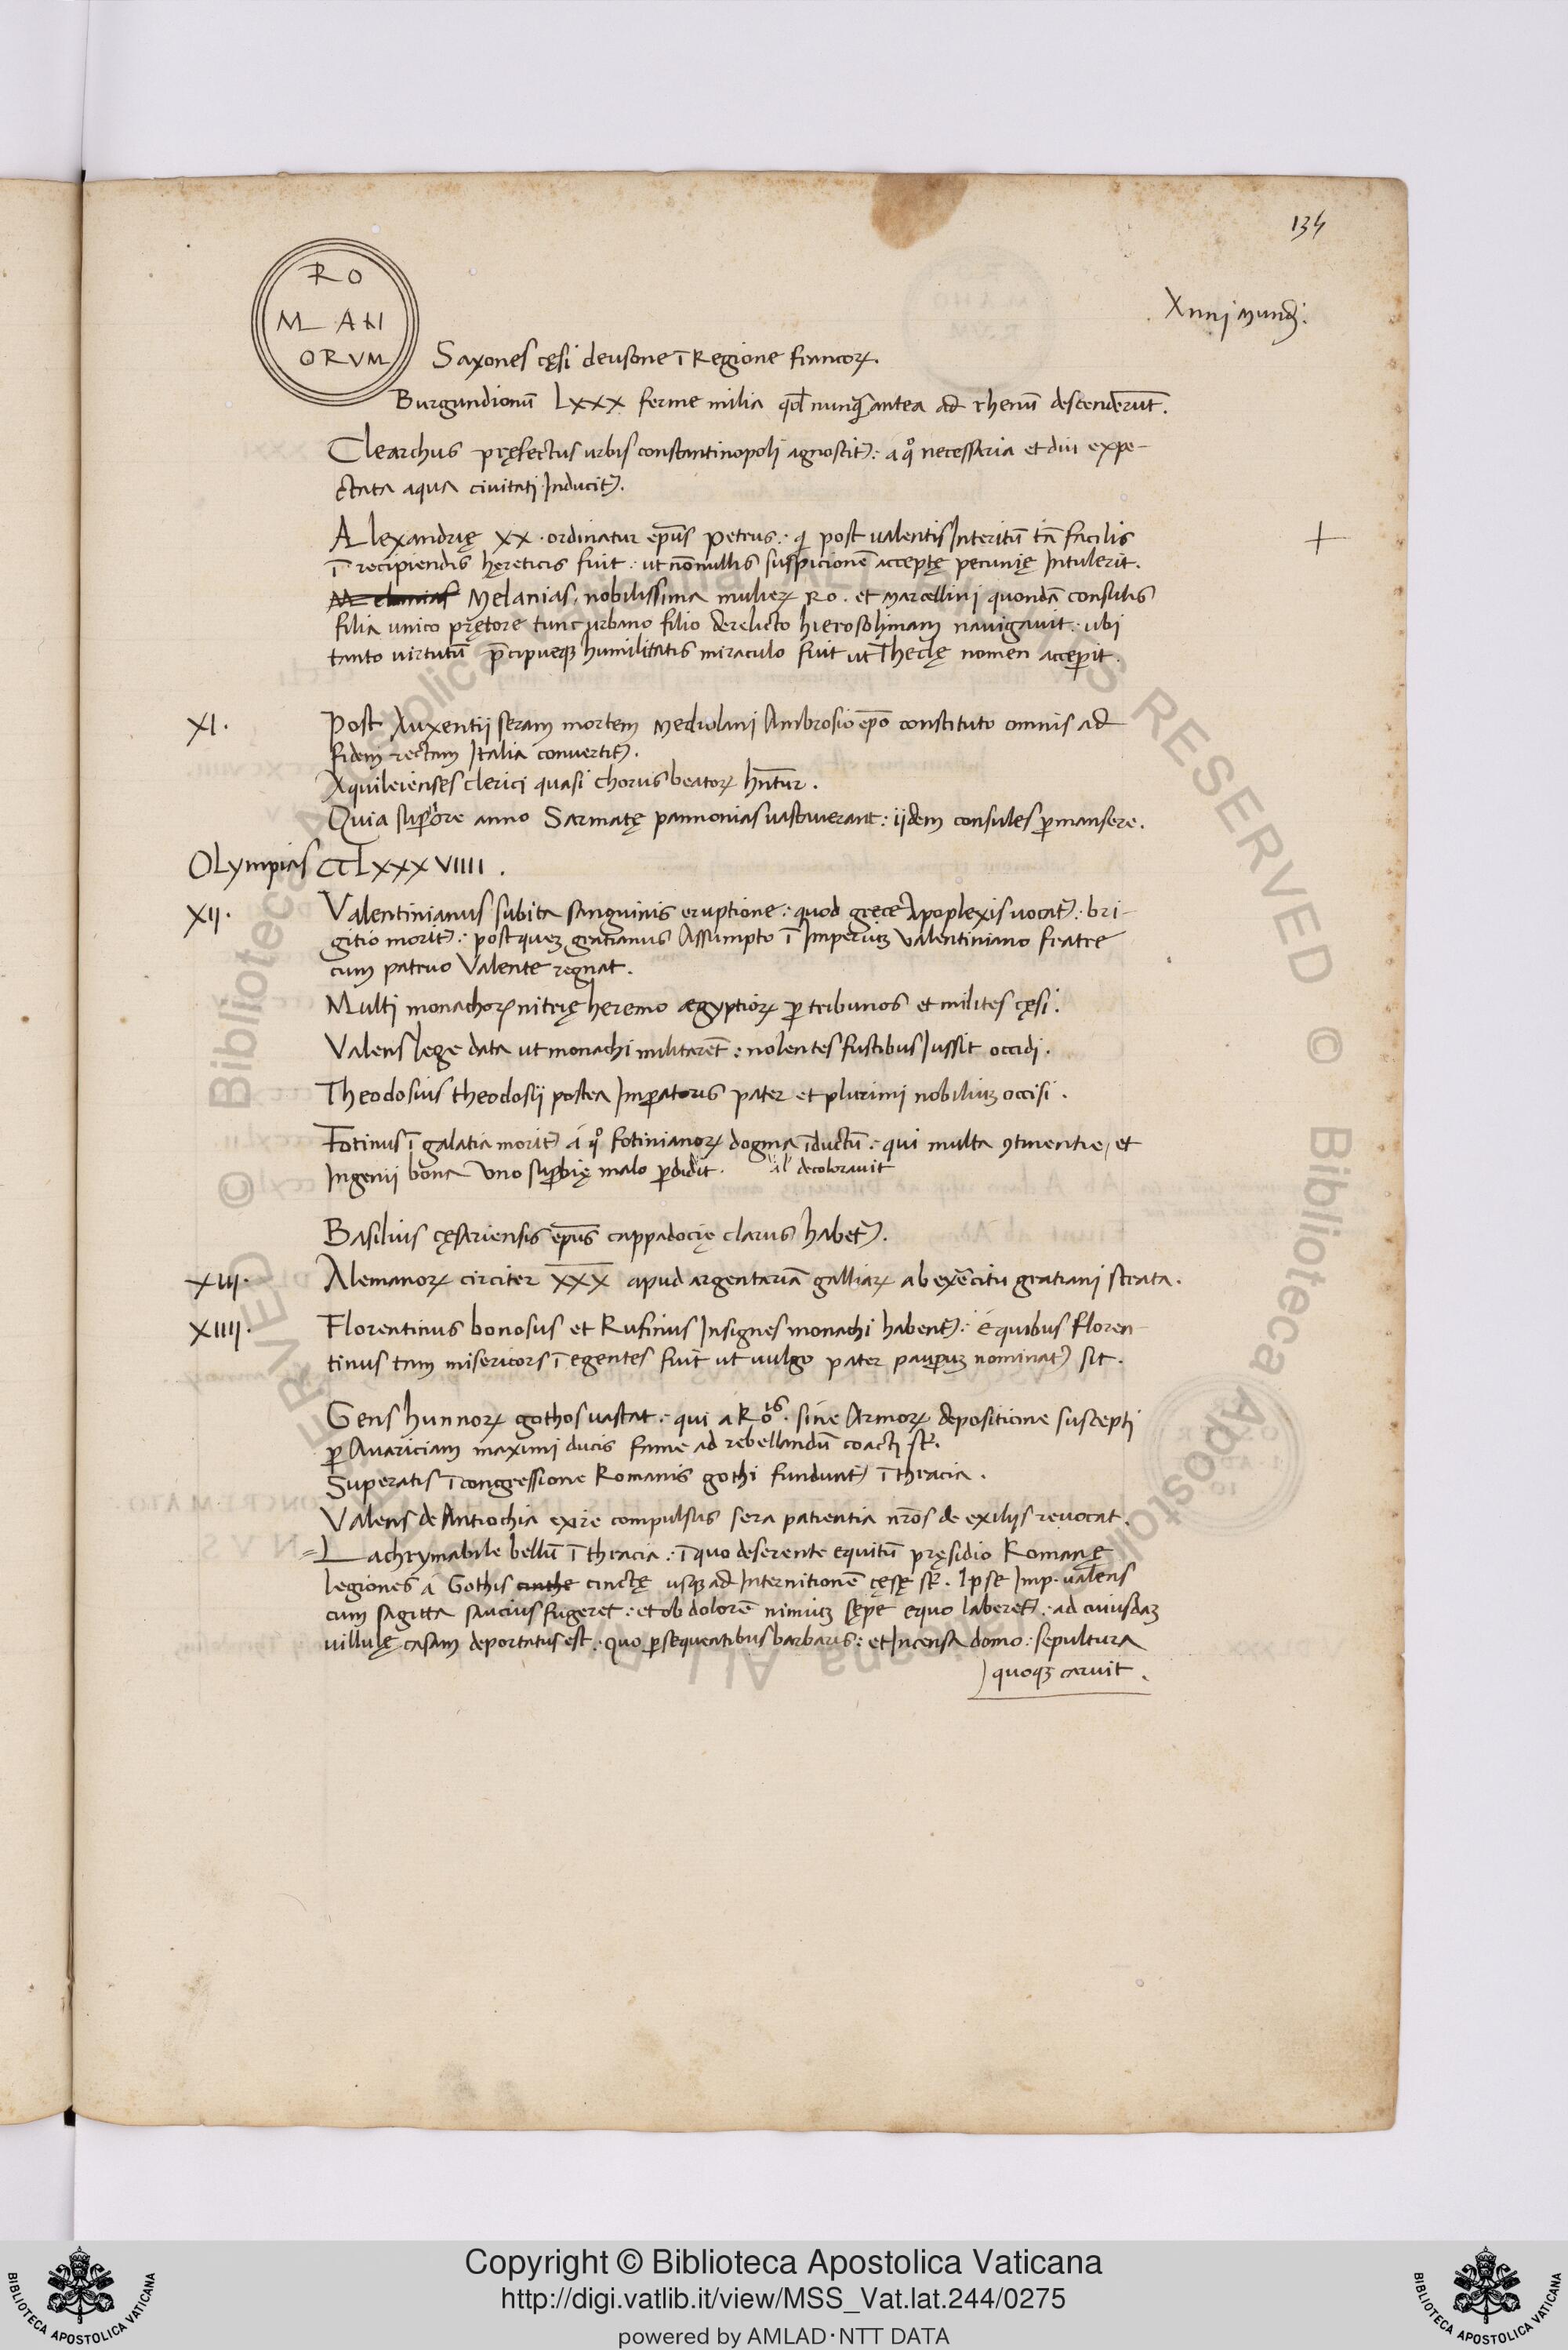 134
RO
MAN
ORVM
Xnni mundi.
Saxones cęsi deusone ī Regione francoꝝ.
Burgundionū Lxxx ferme milia qđ nunq̃ antea ad rhenū descenderūt.
Clearchus pręfectus urbis constantinopoli agnoscit᷑: á qͦ necessaria et diu expe-
ctata aqua civitati Inducit᷑.
Alexandrię xx. ordinatur ep̄us petrus: qi post ualentis Interitū tā facilis
ī recipiendis hęreticis fuit: ut nōnullis suspicionē acceptę pecunię Intulerit.
Melanias Melanias, nobilissima mulieꝝ Ro. et Marcellini quondā consulis
filia unico prętore tunc urbano filio derelicto hierosolimam nauigauit: ubi
tanto uirtutū p̄cipueqꝫ humilitatis miraculo fuit ut Theclę nomen acceꝑit.
XI. Post Auxentij seram mortem Mediolani Ambrosio ep̄o constituto omnis ad
fidem rectam Italia conuertit᷑.
Aquileienses clerici quasi chorus beatoꝝ hn̄tur.
Quia suꝑiore anno Sarmatę pannonias uastauerant: ijdem consules ꝑmansere.
OLympias CCLxxxVIIII.
XII. Valentinianus subita sanguinis eruptione: quod gręce Apoplexis uocat᷑: bri-
gitio morit᷑: post quem gratianus Assumpto ī Imperium Valentiniano fratre
cum patruo Valente regnat.
Multi monachoꝝ nitrię heremo ægyptioꝝ ꝑ tribunos et milites cęsi.
Valens lege data ut monachi militarēt: nolentes fustibus Jussit occidi.
Theodosius theodosij postea Imꝑatoris pater et plurimi nobilium occisi.
Fotinus ī galatia morit᷑ á qͦ fotinianoꝝ dogma īductū: qui multa ꝯtinentie, et
Ingenij bona Uno suꝑbię malo ꝑdidit. al' decolorauit
Basilius cęsariensis ep̄us cappadocię clarus habet᷑.
XIII. Alemanoꝝ circiter X̅X̅X̅ apud argentariā galliaꝝ ab exercitu gratiani strata.
XIIII. Florentinus bonosus et Rufinus Insignes monachi habent᷑: é quibus floren-
tinus tam misericors ī egentes fuit ut uulgo pater pauꝑum nominat᷑ sit.
Gens hunnoꝝ gothos uastat: qui a Roⁱˢ. sine Armoꝝ depositione suscepti
ꝑ Auariciam maximi ducis fame ad rebellandū coacti st̄.
Superatis ī congressione Romanis gothi fundunt᷑ ī thracia.
Valens de Antiochia exire compulsus sera patientia nr̄os de exilijs reuocat.
=Lachrymabile bellū ī thracia: ī quo deserente equitū pręsidio Romanę
legiones á Gothis cinthe cinctę usqꝫ ad Internitionē cęsę st̄. Ipse Imp. ualens
cum sagitta saucius fugeret: et ob dolorē nimium sępe equo laberet᷑: ad cuiusdam
uillulę casam deportatus est. quo ꝑsequentibus barbaris: et Incensa domo: sepultura
quoqꝫ caruit.
Copyright © Biblioteca Apostolica Vaticana
http://digi.vatlib.it/view/MSS_Vat.lat.244/0275
powered by AMLAD·NTT DATA
BIBLIOTECA APOSTOLICA VATICANA
BIBLIOTECA APOSTOLICA VATICANA